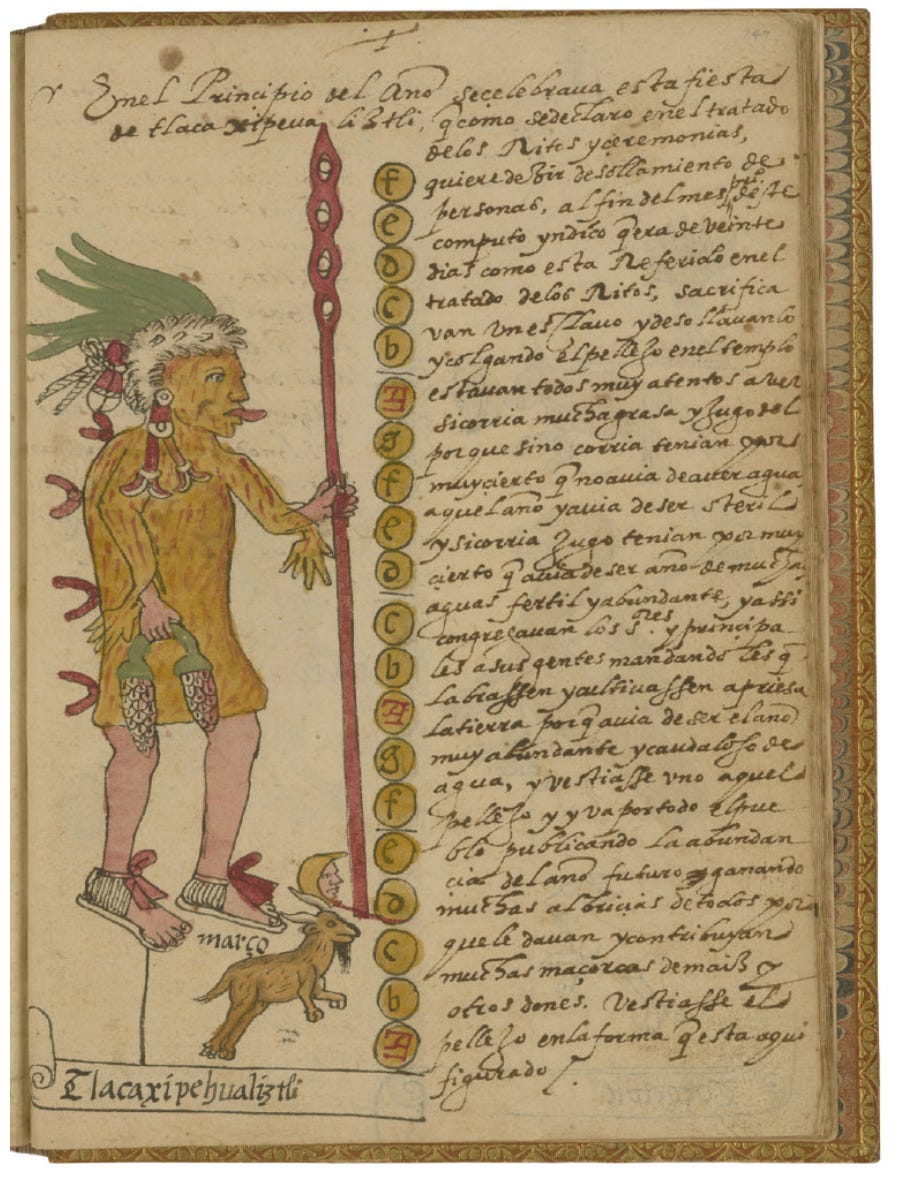 En el Principio del Año secelebraua esta fiesta
de tlaca xipeua liztli, q̃como sedeclaro enel tratado
delos Ritos yceremonias,
quiere dezir desollamiento de
personas, al fin delmes pri.º deste
computo yndico q̃era de veinte
dias como esta Referido enel
tratado delos Ritos, sacrifica
van vn esclauo ydesollauanlo
ycolgando elpellejo enel templo
estauan todos muy atentos aver
sicorria mucha grasa yjugo del
porque sino corria tenian por
muycierto q̃ noauia deauer agua
aquel año yauia deser steril
ysicorria jugo tenian por muy
cierto q̃ auia deser año de mucha
aguas fertil yabundante, yassi
congregauan los s.ores y principa
les asus gentes mandando les q̃
labrassen ycultiuassen apriesa
latierra porq̃ auia deser elaño
muy abundante ycaudaloso de
agua, yvestiasse vno aquel
pellejo y yva portodo elpue
blo publicando la abundan
cia delaño futuro yganando
muchas albricias detodos por
quele dauan ycontribuyan
muchas maçorcas demaiz y
otros dones. Vestiasse el
pellejo enlaforma q̃esta aqui
figurado
f
e
d
c
b
A
g
f
e
d
c
b
A
g
f
e
d
c
b
A
março
Tlacaxipehualiztli